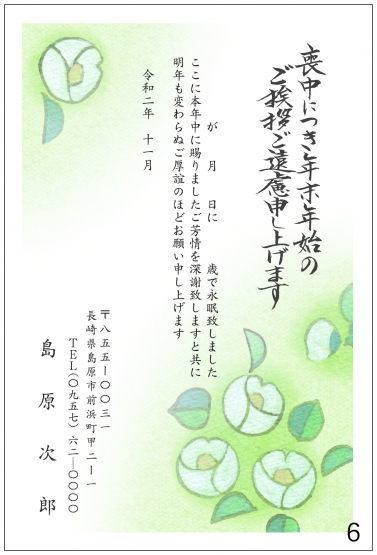 喪中につき年末年始の
ご挨拶ご遠慮申し上げます
が　月　日に　　歳で永眠致しました
ここに本年中に賜りましたご芳情を深謝致しますと共に
明年も変わらぬご厚誼のほどお願い申し上げます
令和二年　十一月
〒八五五―〇〇三一
長崎県島原市前浜町甲二―一
TEL(〇九五七)六二―〇〇〇〇
島原次郎
6